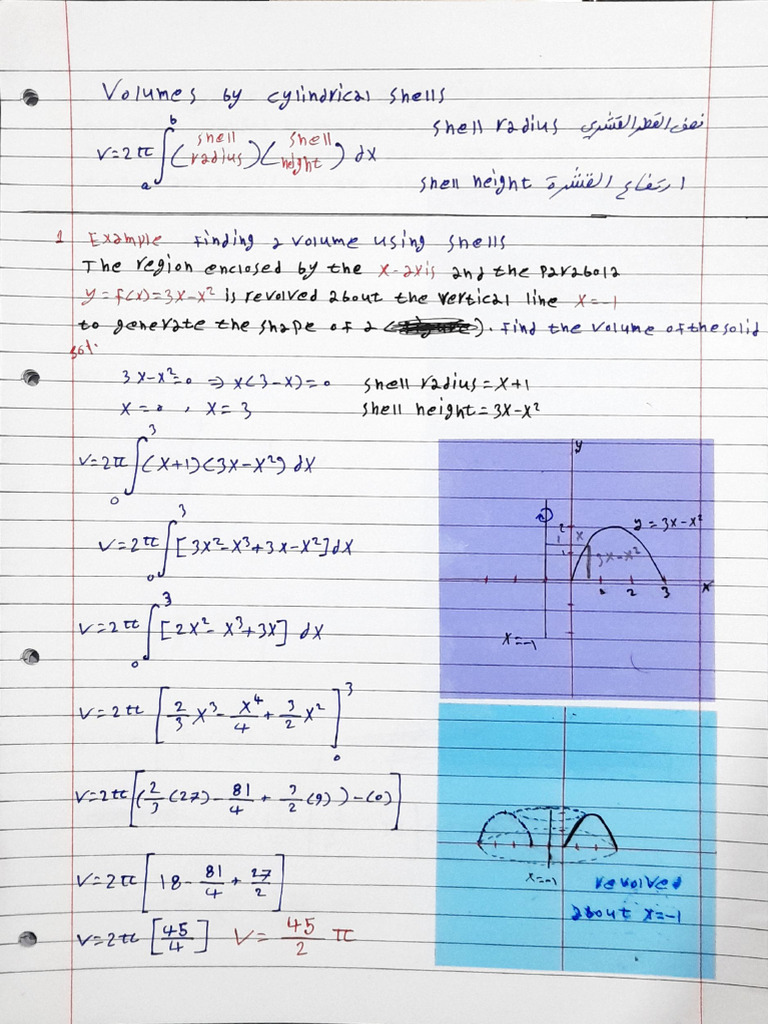 Volumes by cylindrical shells
V=2π∫ₐᵇ (shell radius)(shell height) dx
shell radius نصف القطر القشري
shell height ارتفاع القشرة
1 Example Finding a volume using shells
The region enclosed by the x-axis and the Parabola
y=f(x)=3x-x² is revolved about the vertical line x=-1
to generate the shape of a ( ). Find the volume of the solid
sol.
3x-x²=0 ⇒ x(3-x)=0 shell radius=x+1
x=0 , x=3 shell height=3x-x²
V=2π∫₀³ (x+1)(3x-x²) dx
V=2π∫₀³ [3x²-x³+3x-x²]dx
V=2π∫₀³ [2x²-x³+3x] dx
V=2π[2/3 x³-x⁴/4+3/2 x²]₀³
V=2π[(2/3(27)-81/4+3/2(9))-(0)]
V=2π[18-81/4+27/2]
V=2π[45/4] V=45/2 π
y
y=3x-x²
2
1 x
1
3x-x²
1 2 3 x
x=-1
x=-1
revolved
about x=-1